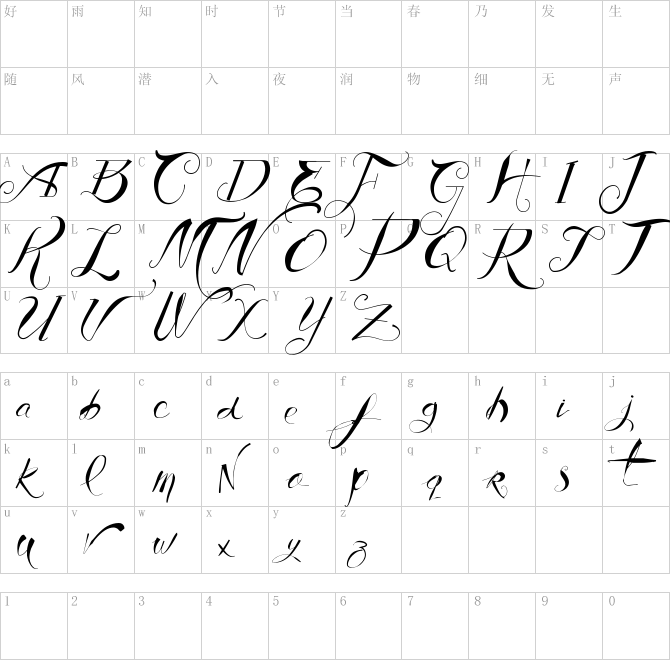 好 雨 知 时 节 当 春 乃 发 生
随 风 潜 入 夜 润 物 细 无 声
A B C D E F G H I J
A B C D E F G H I J
K L M N O P Q R S T
K L M N O P Q R S T
U V W X Y Z
U V W X Y Z
a b c d e f g h i j
a b c d e f g h i j
k l m n o p q r s t
k l m N o p q r s t
u v w x y z
u v w x y z
1 2 3 4 5 6 7 8 9 0